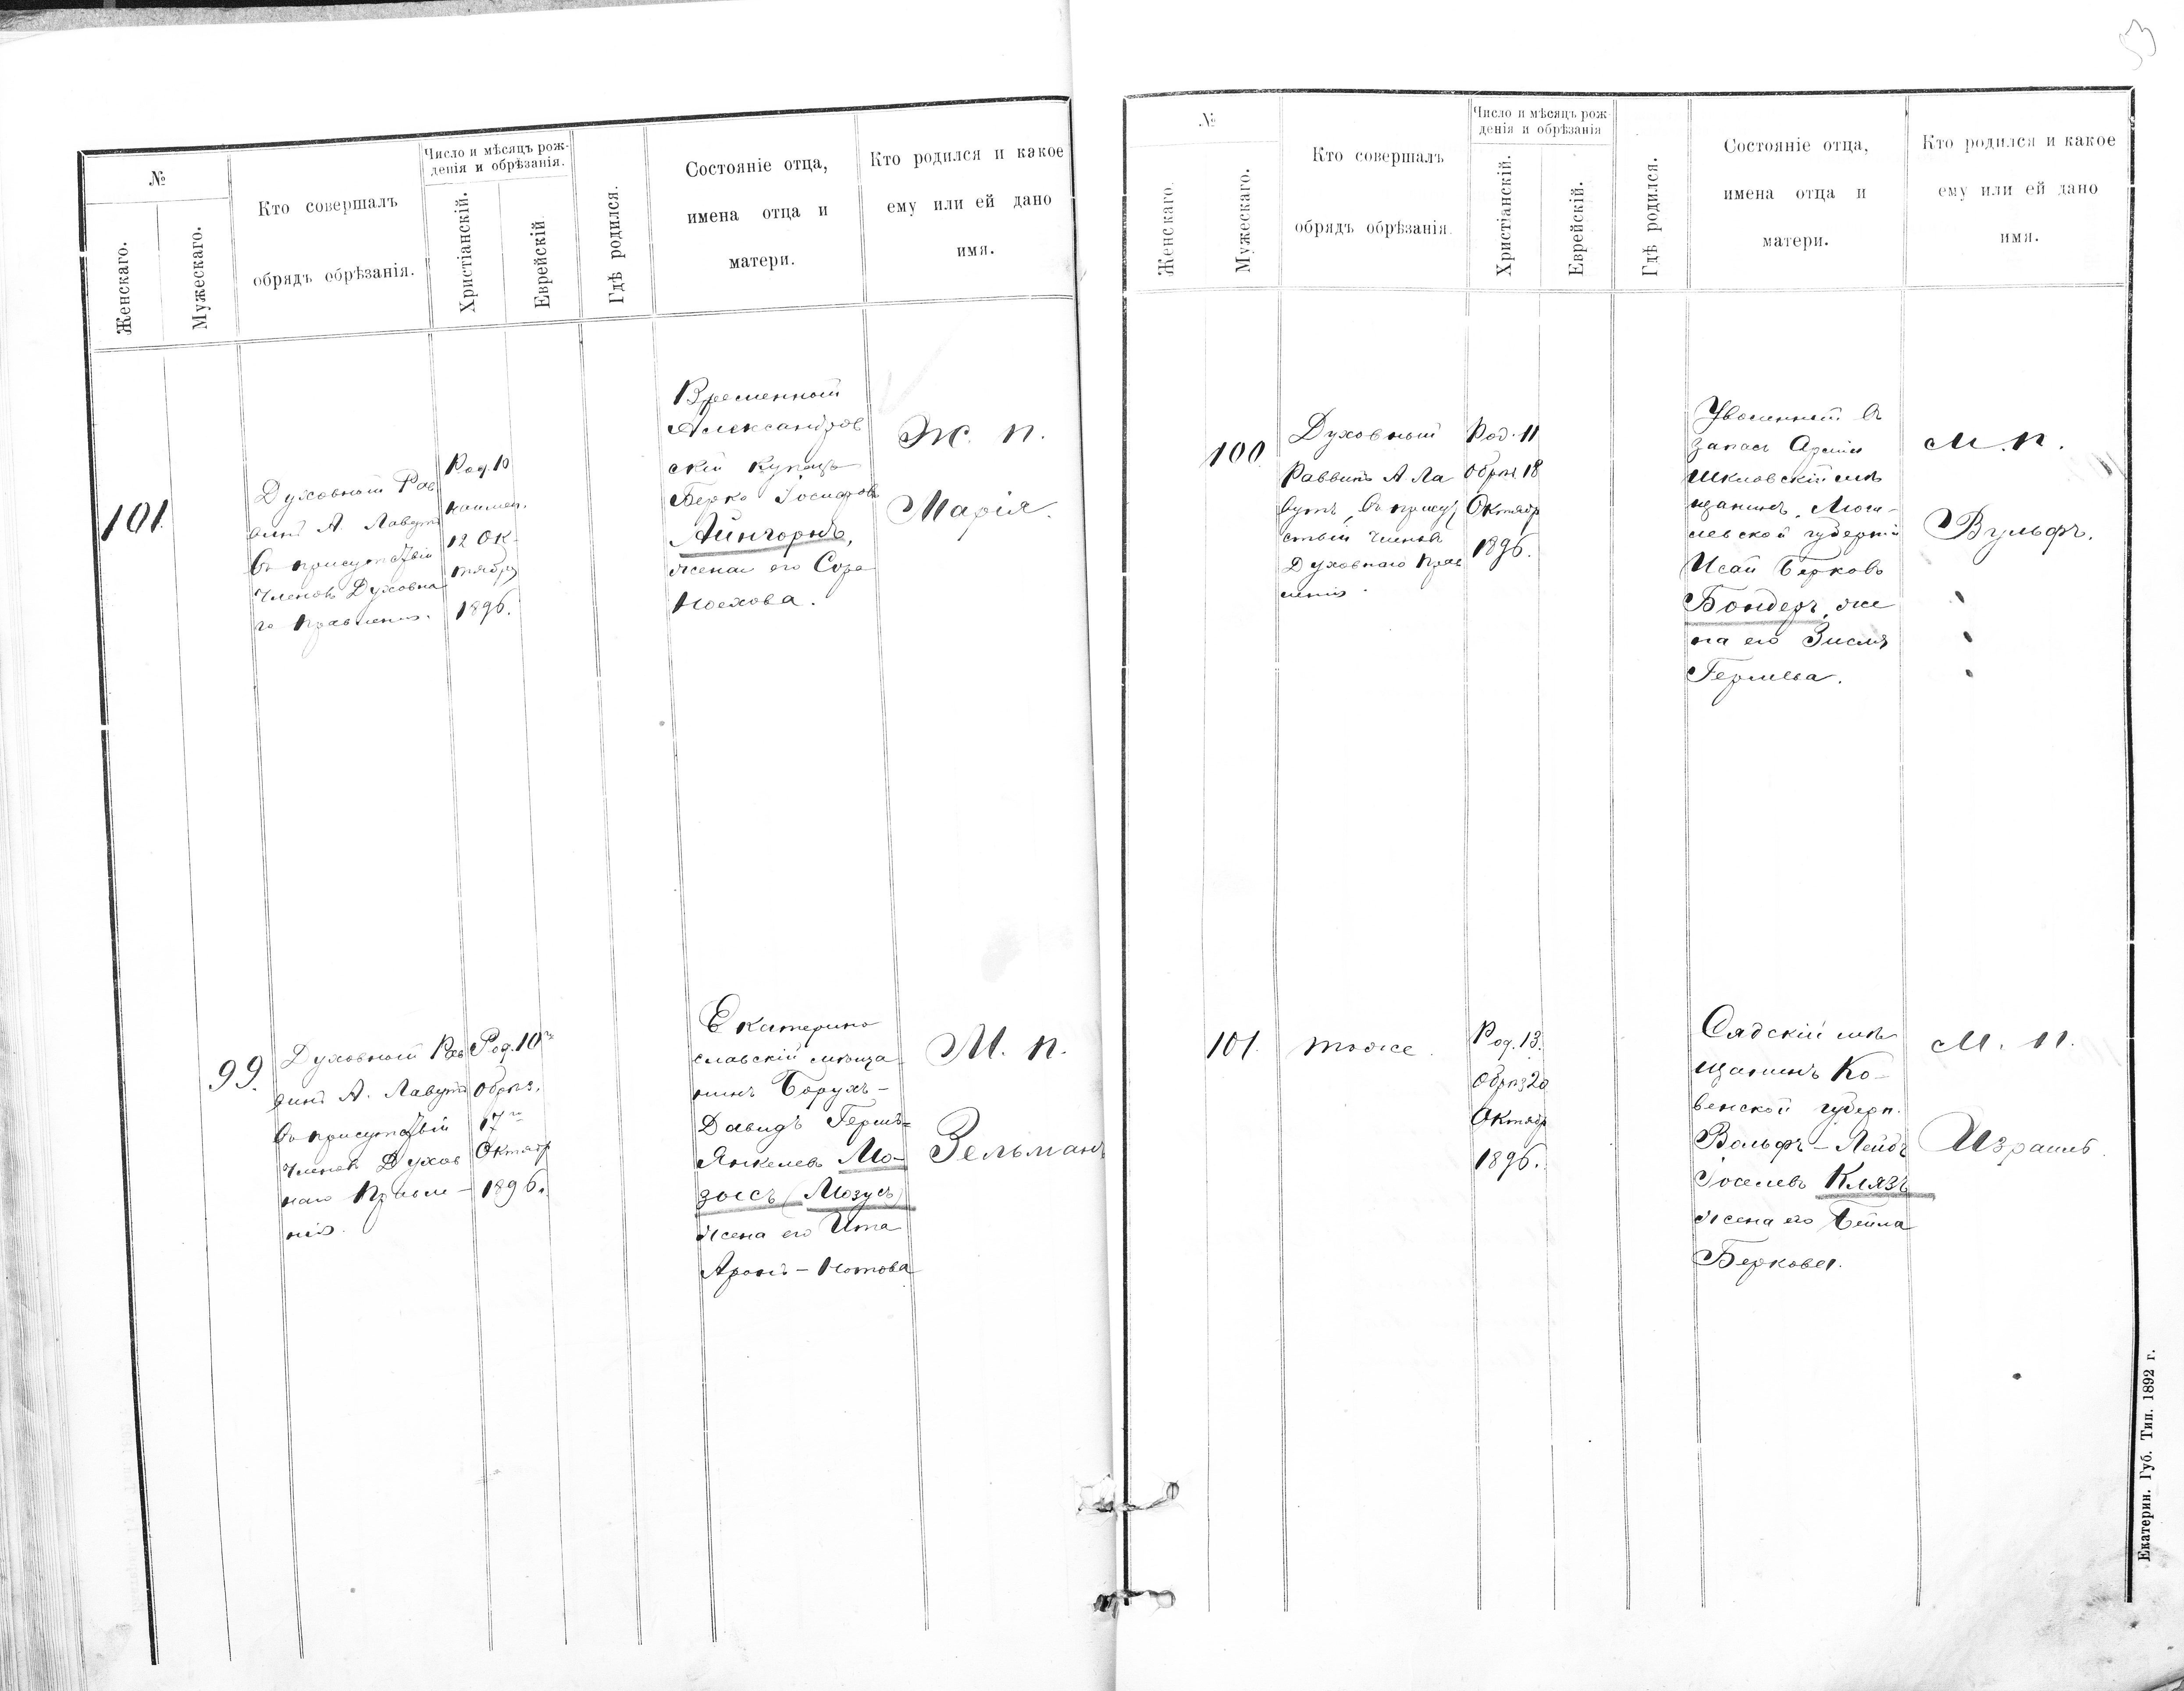 53
№
Женскаго.
Мужескаго.
Кто совершалъ
обрядъ обрѣзанія.
Число и мѣсяцъ рож-
денія и обрѣзанія.
Христіанскій.
Еврейскій
Гдѣ родился.
Состояніе отца,
имена отца и
матери.
Кто родился и какое
ему или ей дано
имя.
101.
Духовный Рав
винъ А. Лавутъ
въ присутствіи
Членовъ Духовна
го Правленія.
Род. 10
наимен.
12 Ок-
тября
1896.
Временный
Александров
скій купецъ
Берко Іосифовъ
Айнгорнъ,
жена его Сора
Ноехова.
Ж. п.
Марія.
99.
Духовный Рав
винъ А. Лавутъ
въ присутствіи
Членовъ Духов
наго Правле-
нія.
Род. 10го
Обрѣз.
17го
Октябр
1896.
Екатерино
славскій мѣща
нинъ Борухъ-
Давидъ Гершъ=
Янкелевъ Мо-
зысъ (Мозусъ)
жена его Ита
Аронъ-Нотова
М. п.
Зельманъ
№
Женскаго.
Мужескаго.
Кто совершалъ
обрядъ обрѣзанія.
Число и мѣсяцъ рож-
денія и обрѣзанія
Христіанскій.
Еврейскій.
Гдѣ родился.
Состояніе отца,
имена отца и
матери.
Кто родился и какое
ему или ей дано
имя.
100
Духовный
Раввинъ А Ла
вутъ, въ присут
ствіи Членовъ
Духовнаго Прав
ленія.
Род. 11
Обрѣз. 18
Октябр
1896.
Уволенный въ
запасъ Арміи
Шкловскій мѣ
щанинъ, Моги-
левской губерніи
Исай Берковъ
Бондеръ, же
на его Зисля
Гершева.
М. п.
Вульфъ.
101.
тоже.
Род. 13.
Обрѣз 20
Октябр
1896.
Сядскій мѣ
щанинъ Ко-
венской губерн.
Вольфъ-Лейбъ
Іоселевъ Клязъ
жена его Бейла
Беркова.
М. п.
Израиль.
Екатерин. Губ. Тип. 1892 г.